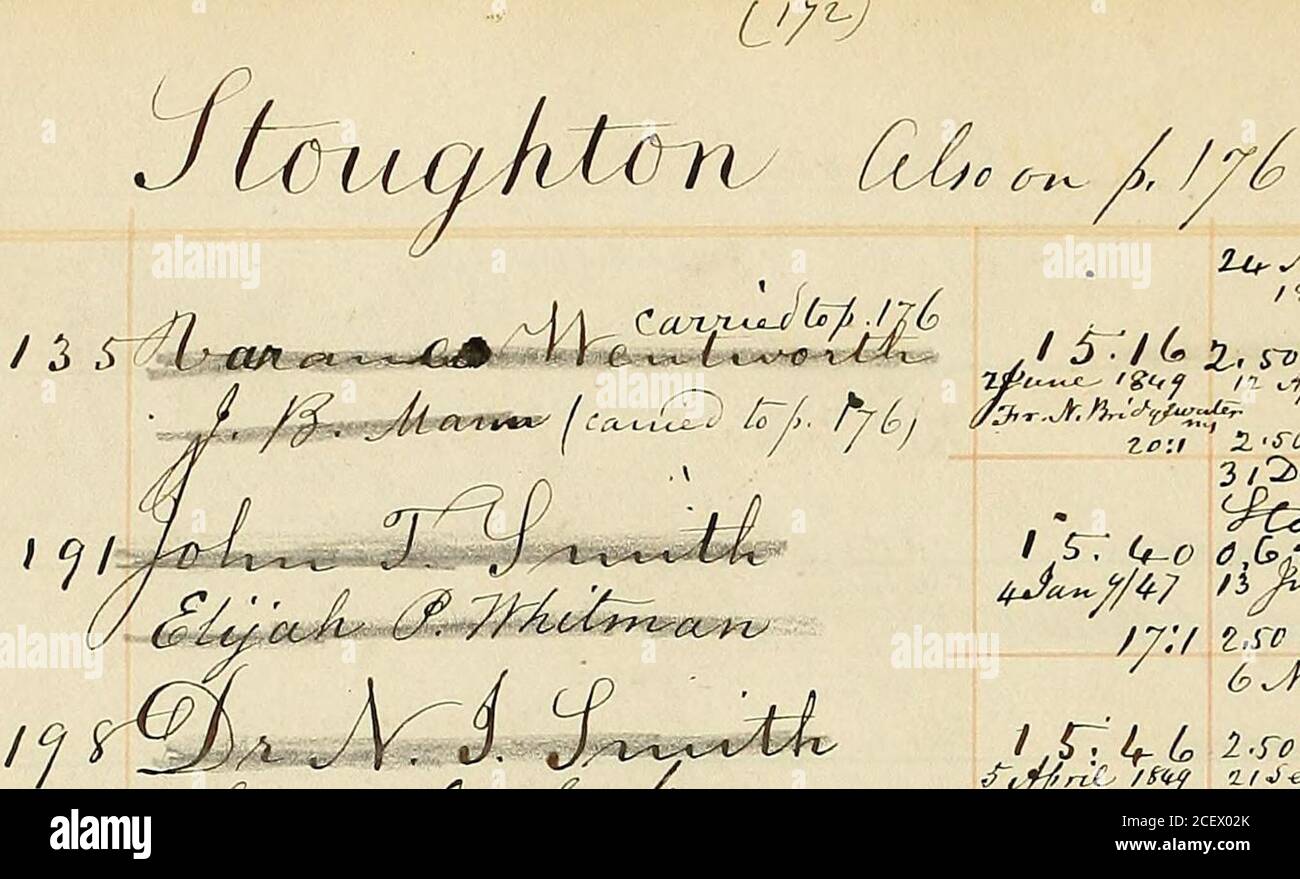 (172)
Stoughton Also on p. 176
carried to p. 176
135 Wentworth 15.16 2.50
2 June 1849 12
J. B. Mann (carried to p. 176) Fr. N. Bridgewater
20:1 2.50
31 D
191 John T. Smith 15.40 0.6
4 Jan 7/47 13
Elijah P. Whitman 17:1 2.50
6 N
198 Dr N. S. Smith 15.46 2.50
5 April 1849 21 Se
alamy
alamy
Image ID: 2CEX02K
www.alamy.com